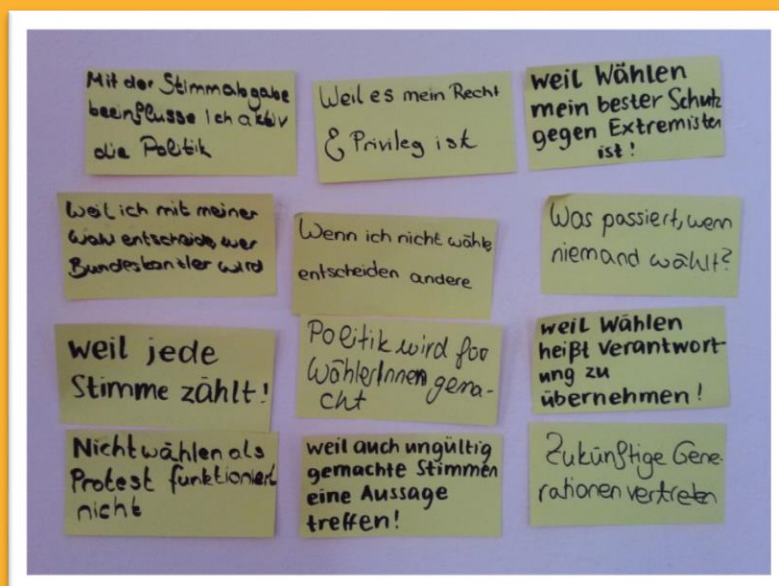 Mit der Stimmabgabe
beeinflusse Ich aktiv
die Politik
Weil es mein Recht
& Privileg ist
weil Wählen
mein bester Schutz
gegen Extremisten
ist!
Weil ich mit meiner
Wahl entscheide, wer
Bundeskanzler wird
Wenn ich nicht wähle
entscheiden andere
Was passiert, wenn
niemand wählt?
weil jede
Stimme zählt!
Politik wird für
WählerInnen gema-
cht
weil Wählen
heißt Verantwort-
ung zu
übernehmen!
Nicht wählen als
Protest funktioniert
nicht
weil auch ungültig
gemachte Stimmen
eine Aussage
treffen!
Zukünftige Gene-
rationen vertreten